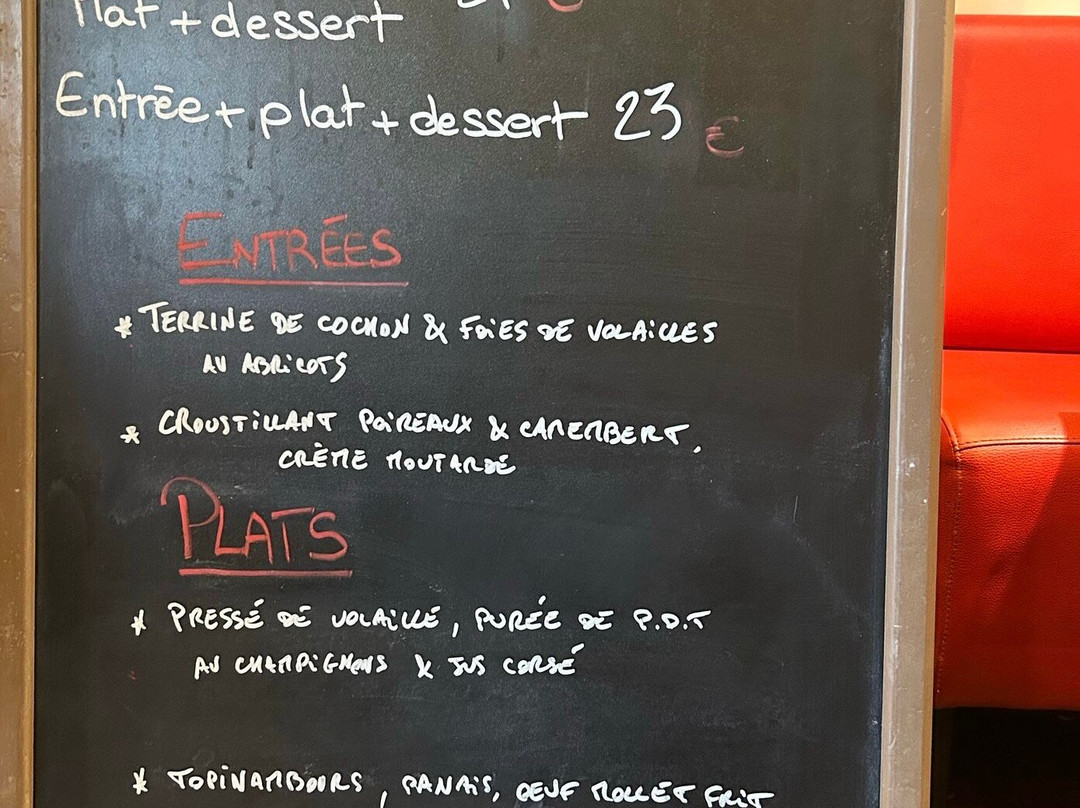 Plat + dessert €
Entrée + plat + dessert 23 €
ENTRÉES
* TERRINE DE COCHON & FOIES DE VOLAILLES
AU ABRICOTS
* CROUSTILLANT POIREAUX & CAMEMBERT,
CRÈME MOUTARDE
PLATS
* PRESSÉ DE VOLAILLE, PURÉE DE P.D.T
AU CHAMPIGNONS & JUS CORSÉ
* TOPINAMBOURS, PANAIS, OEUF MOLLET FRIT